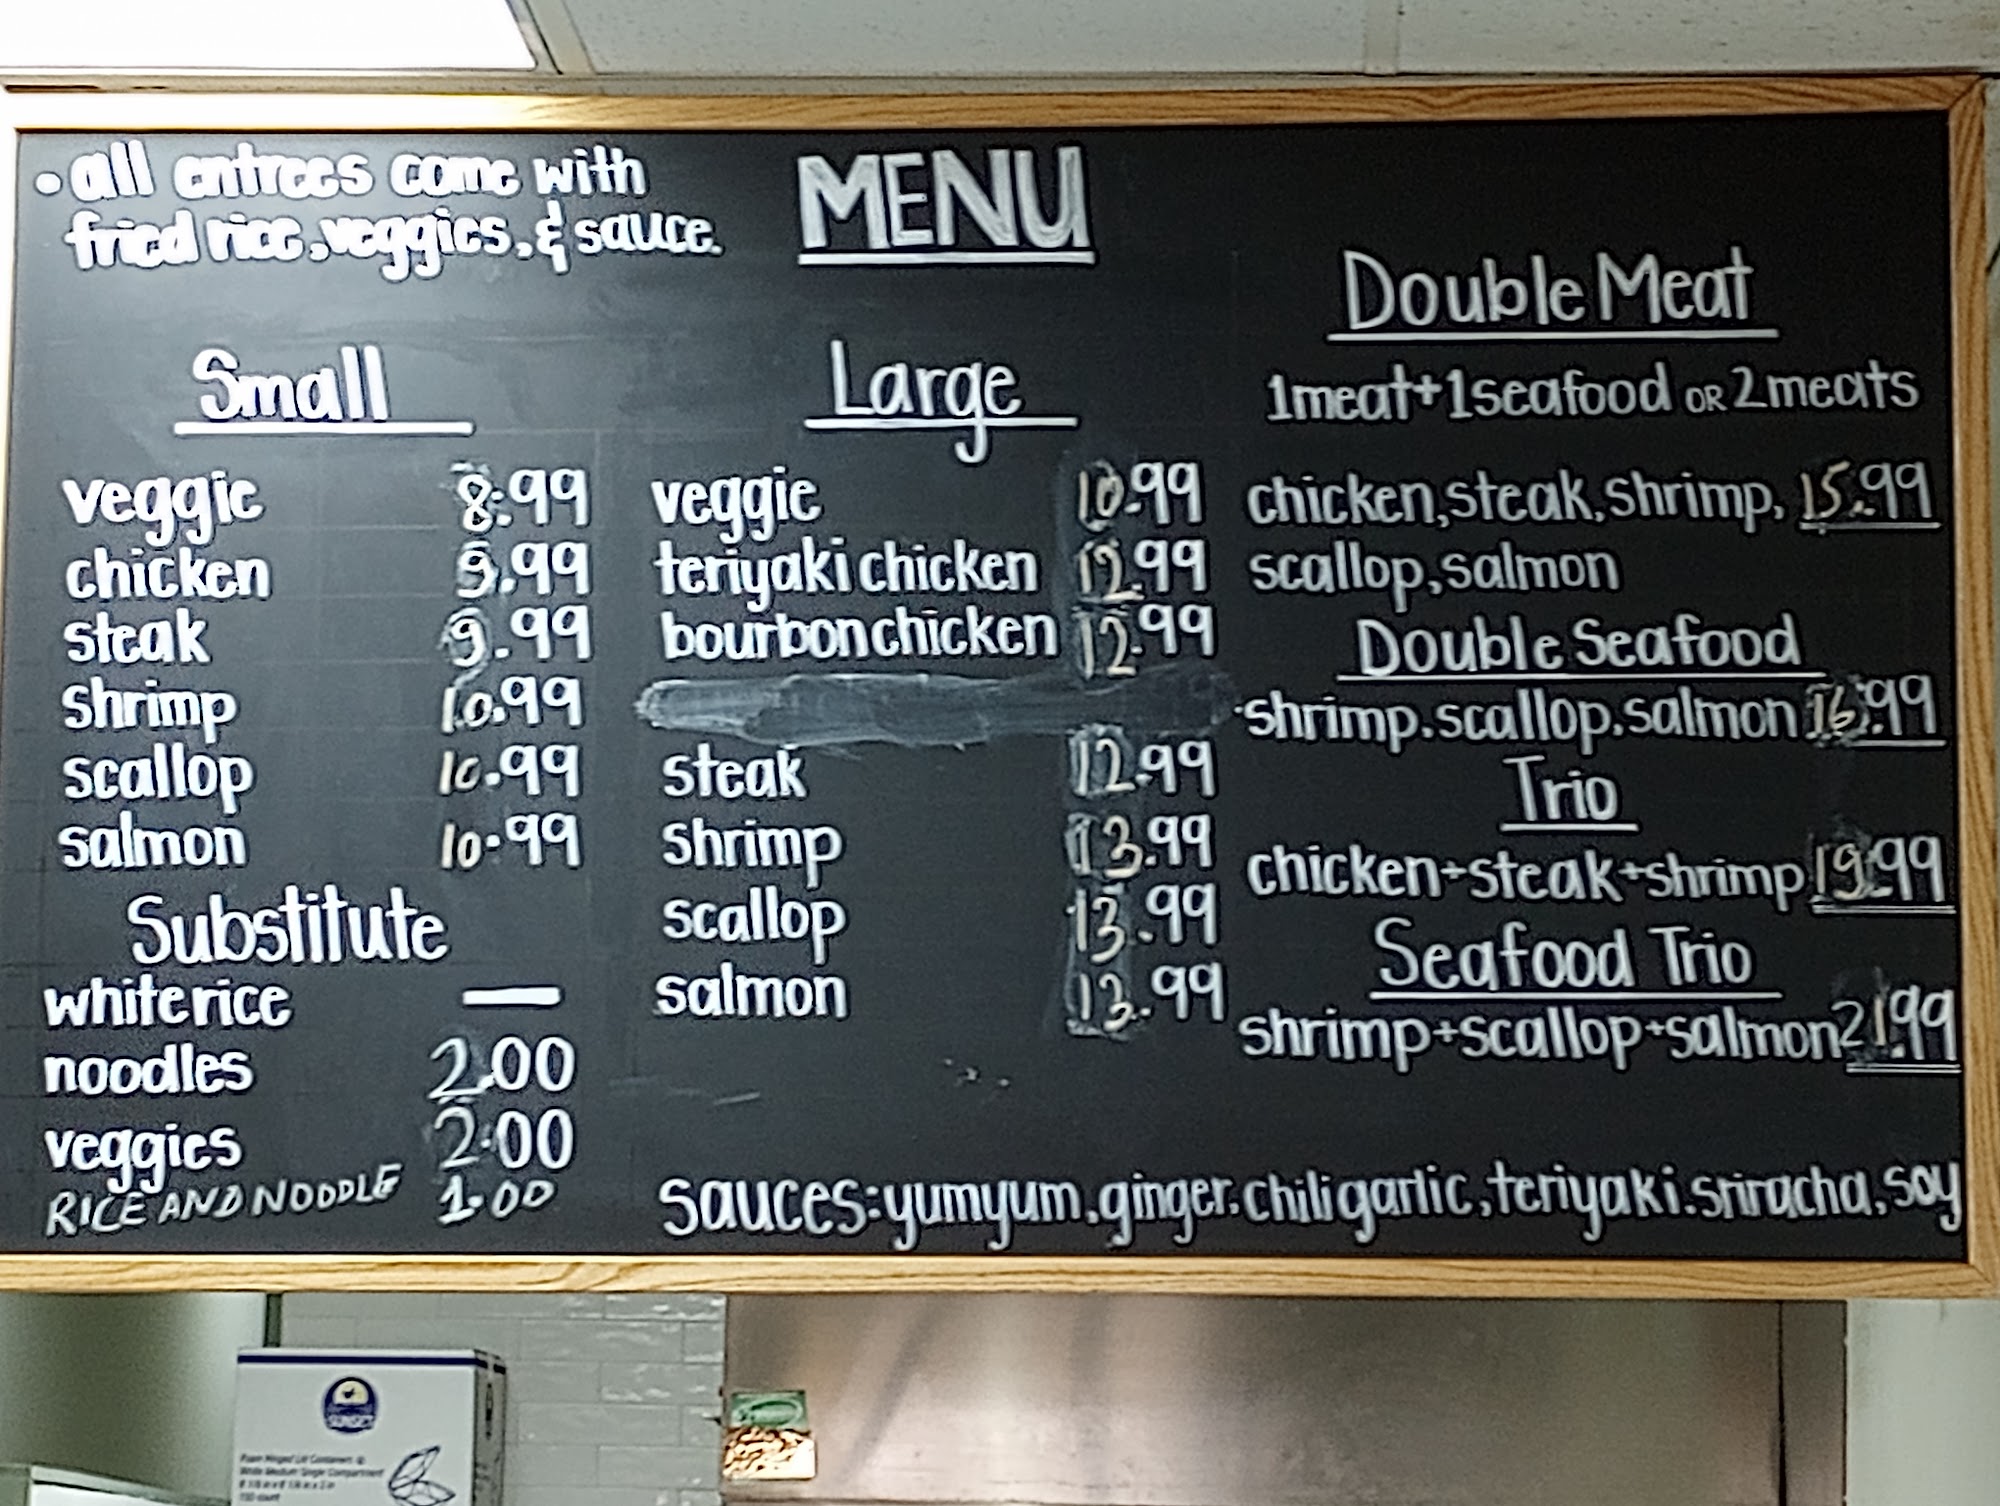 • all entrees come with
fried rice, veggies, & sauce.
MENU
Small
veggie 8.99
chicken 9.99
steak 9.99
shrimp 10.99
scallop 10.99
salmon 10.99
Substitute
white rice —
noodles 2.00
veggies 2.00
RICE AND NOODLE 1.00
Large
veggie 10.99
teriyaki chicken 12.99
bourbon chicken 12.99
steak 12.99
shrimp 13.99
scallop 13.99
salmon 13.99
Double Meat
1 meat + 1 seafood OR 2 meats
chicken, steak, shrimp, 15.99
scallop, salmon
Double Seafood
shrimp. scallop. salmon 16.99
Trio
chicken + steak + shrimp 19.99
Seafood Trio
shrimp + scallop + salmon 21.99
sauces: yumyum, ginger, chili garlic, teriyaki. sriracha, soy
SUNSET
Foam Hinged Lid Containers
White Medium Single Compartment